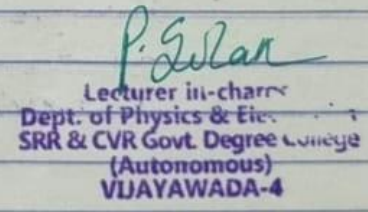 Lecturer in-charge
Dept. of Physics &
SRR & CVR Govt. Degree College
(Autonomous)
VIJAYAWADA-4